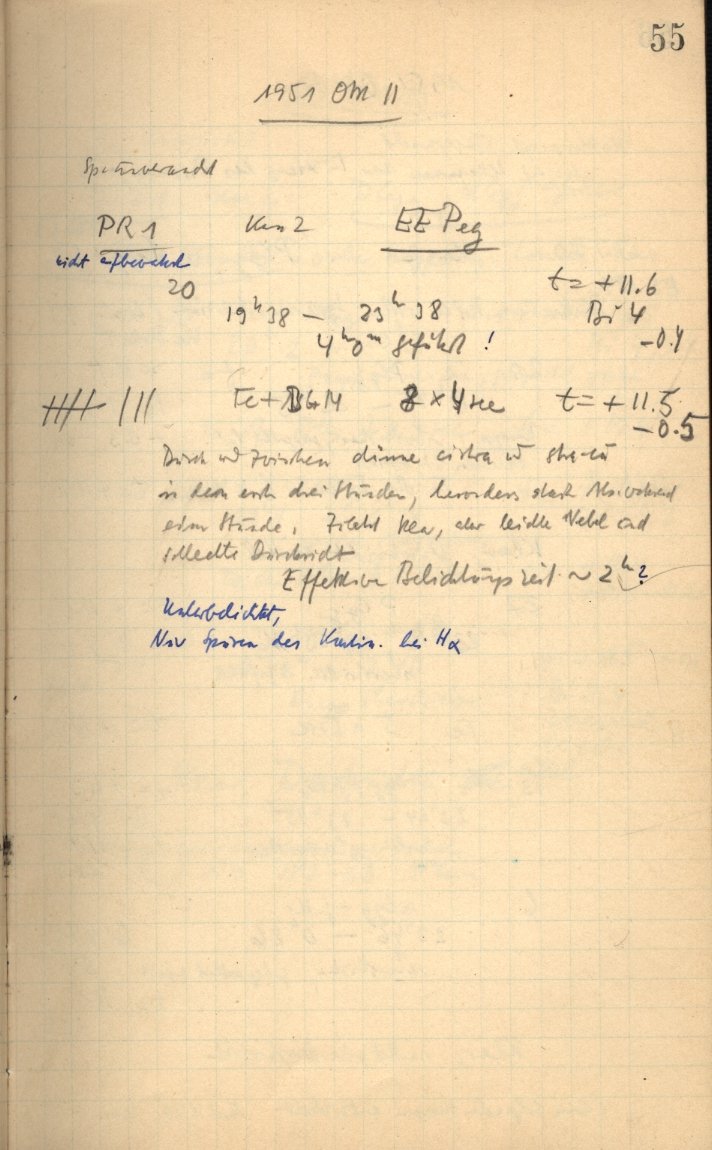 55
1951 Okt 11
PR 1 Kam 2 EE Peg
nicht aufbewahrt
20
t = + 11.6
19ʰ38 — 23ʰ38 Bi 4
4ʰ0ᵐ geführt ! -0.4
|||| ||| Fe + 8 × 4 sec t = + 11.5
-0.5
Durch und zwischen dünne cirren
in den ersten drei Stunden, besonders stark während
einer Stunde. Zuletzt klar, aber leichte Nebel und
schlechte Durchsicht
Effektive Belichtungszeit ~ 2ʰ ?
Unterbelichtet,
Nur Spuren des Kontin. bei Hα